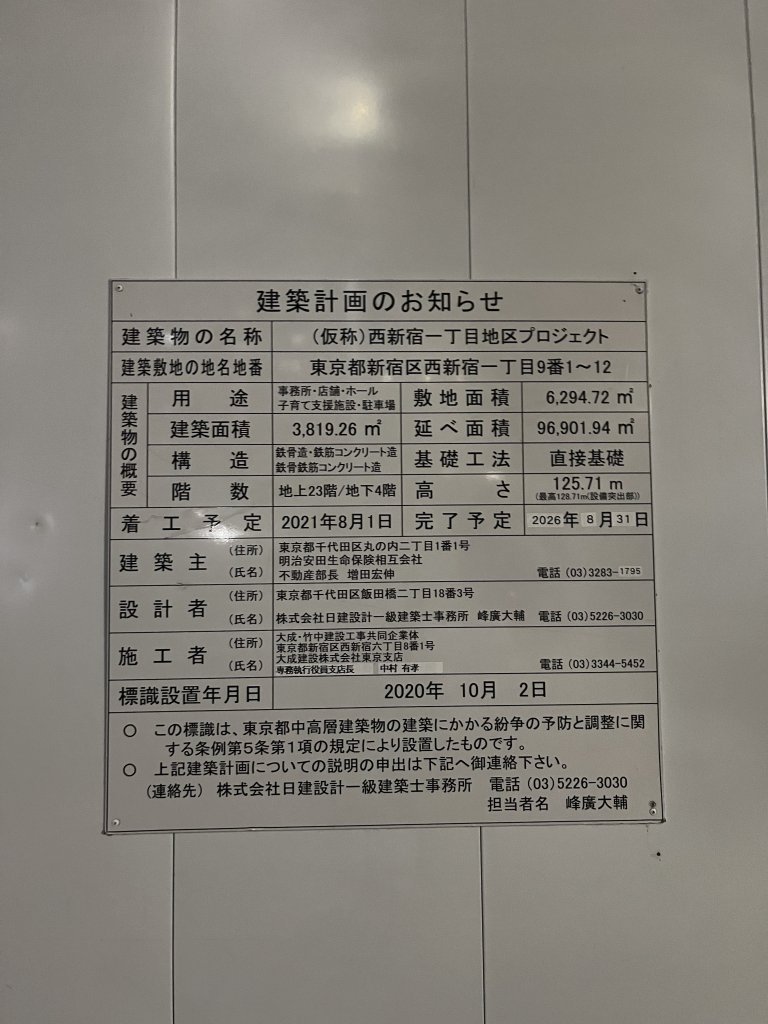 建築計画のお知らせ
建築物の名称 (仮称)西新宿一丁目地区プロジェクト
建築敷地の地名地番 東京都新宿区西新宿一丁目9番1～12
建築物の概要
用途 事務所・店舗・ホール
子育て支援施設・駐車場
敷地面積 6,294.72 ㎡
建築面積 3,819.26 ㎡ 延べ面積 96,901.94 ㎡
構造 鉄骨造・鉄筋コンクリート造
鉄骨鉄筋コンクリート造
基礎工法 直接基礎
階数 地上23階/地下4階 高さ 125.71 m
(最高128.71m(設備突出部))
着工予定 2021年8月1日 完了予定 2026年8月31日
建築主 (住所) 東京都千代田区丸の内二丁目1番1号
明治安田生命保険相互会社
(氏名) 不動産部長 増田宏伸 電話 (03)3283-1795
設計者 (住所) 東京都千代田区飯田橋二丁目18番3号
(氏名) 株式会社日建設計一級建築士事務所 峰廣大輔 電話 (03)5226-3030
施工者 (住所) 大成・竹中建設工事共同企業体
東京都新宿区西新宿六丁目8番1号
大成建設株式会社東京支店
(氏名) 専務執行役員支店長 中村 有孝 電話 (03)3344-5452
標識設置年月日 2020年 10月 2日
○ この標識は、東京都中高層建築物の建築にかかる紛争の予防と調整に関
する条例第5条第1項の規定により設置したものです。
○ 上記建築計画についての説明の申出は下記へ御連絡下さい。
(連絡先) 株式会社日建設計一級建築士事務所 電話 (03)5226-3030
担当者名 峰廣大輔